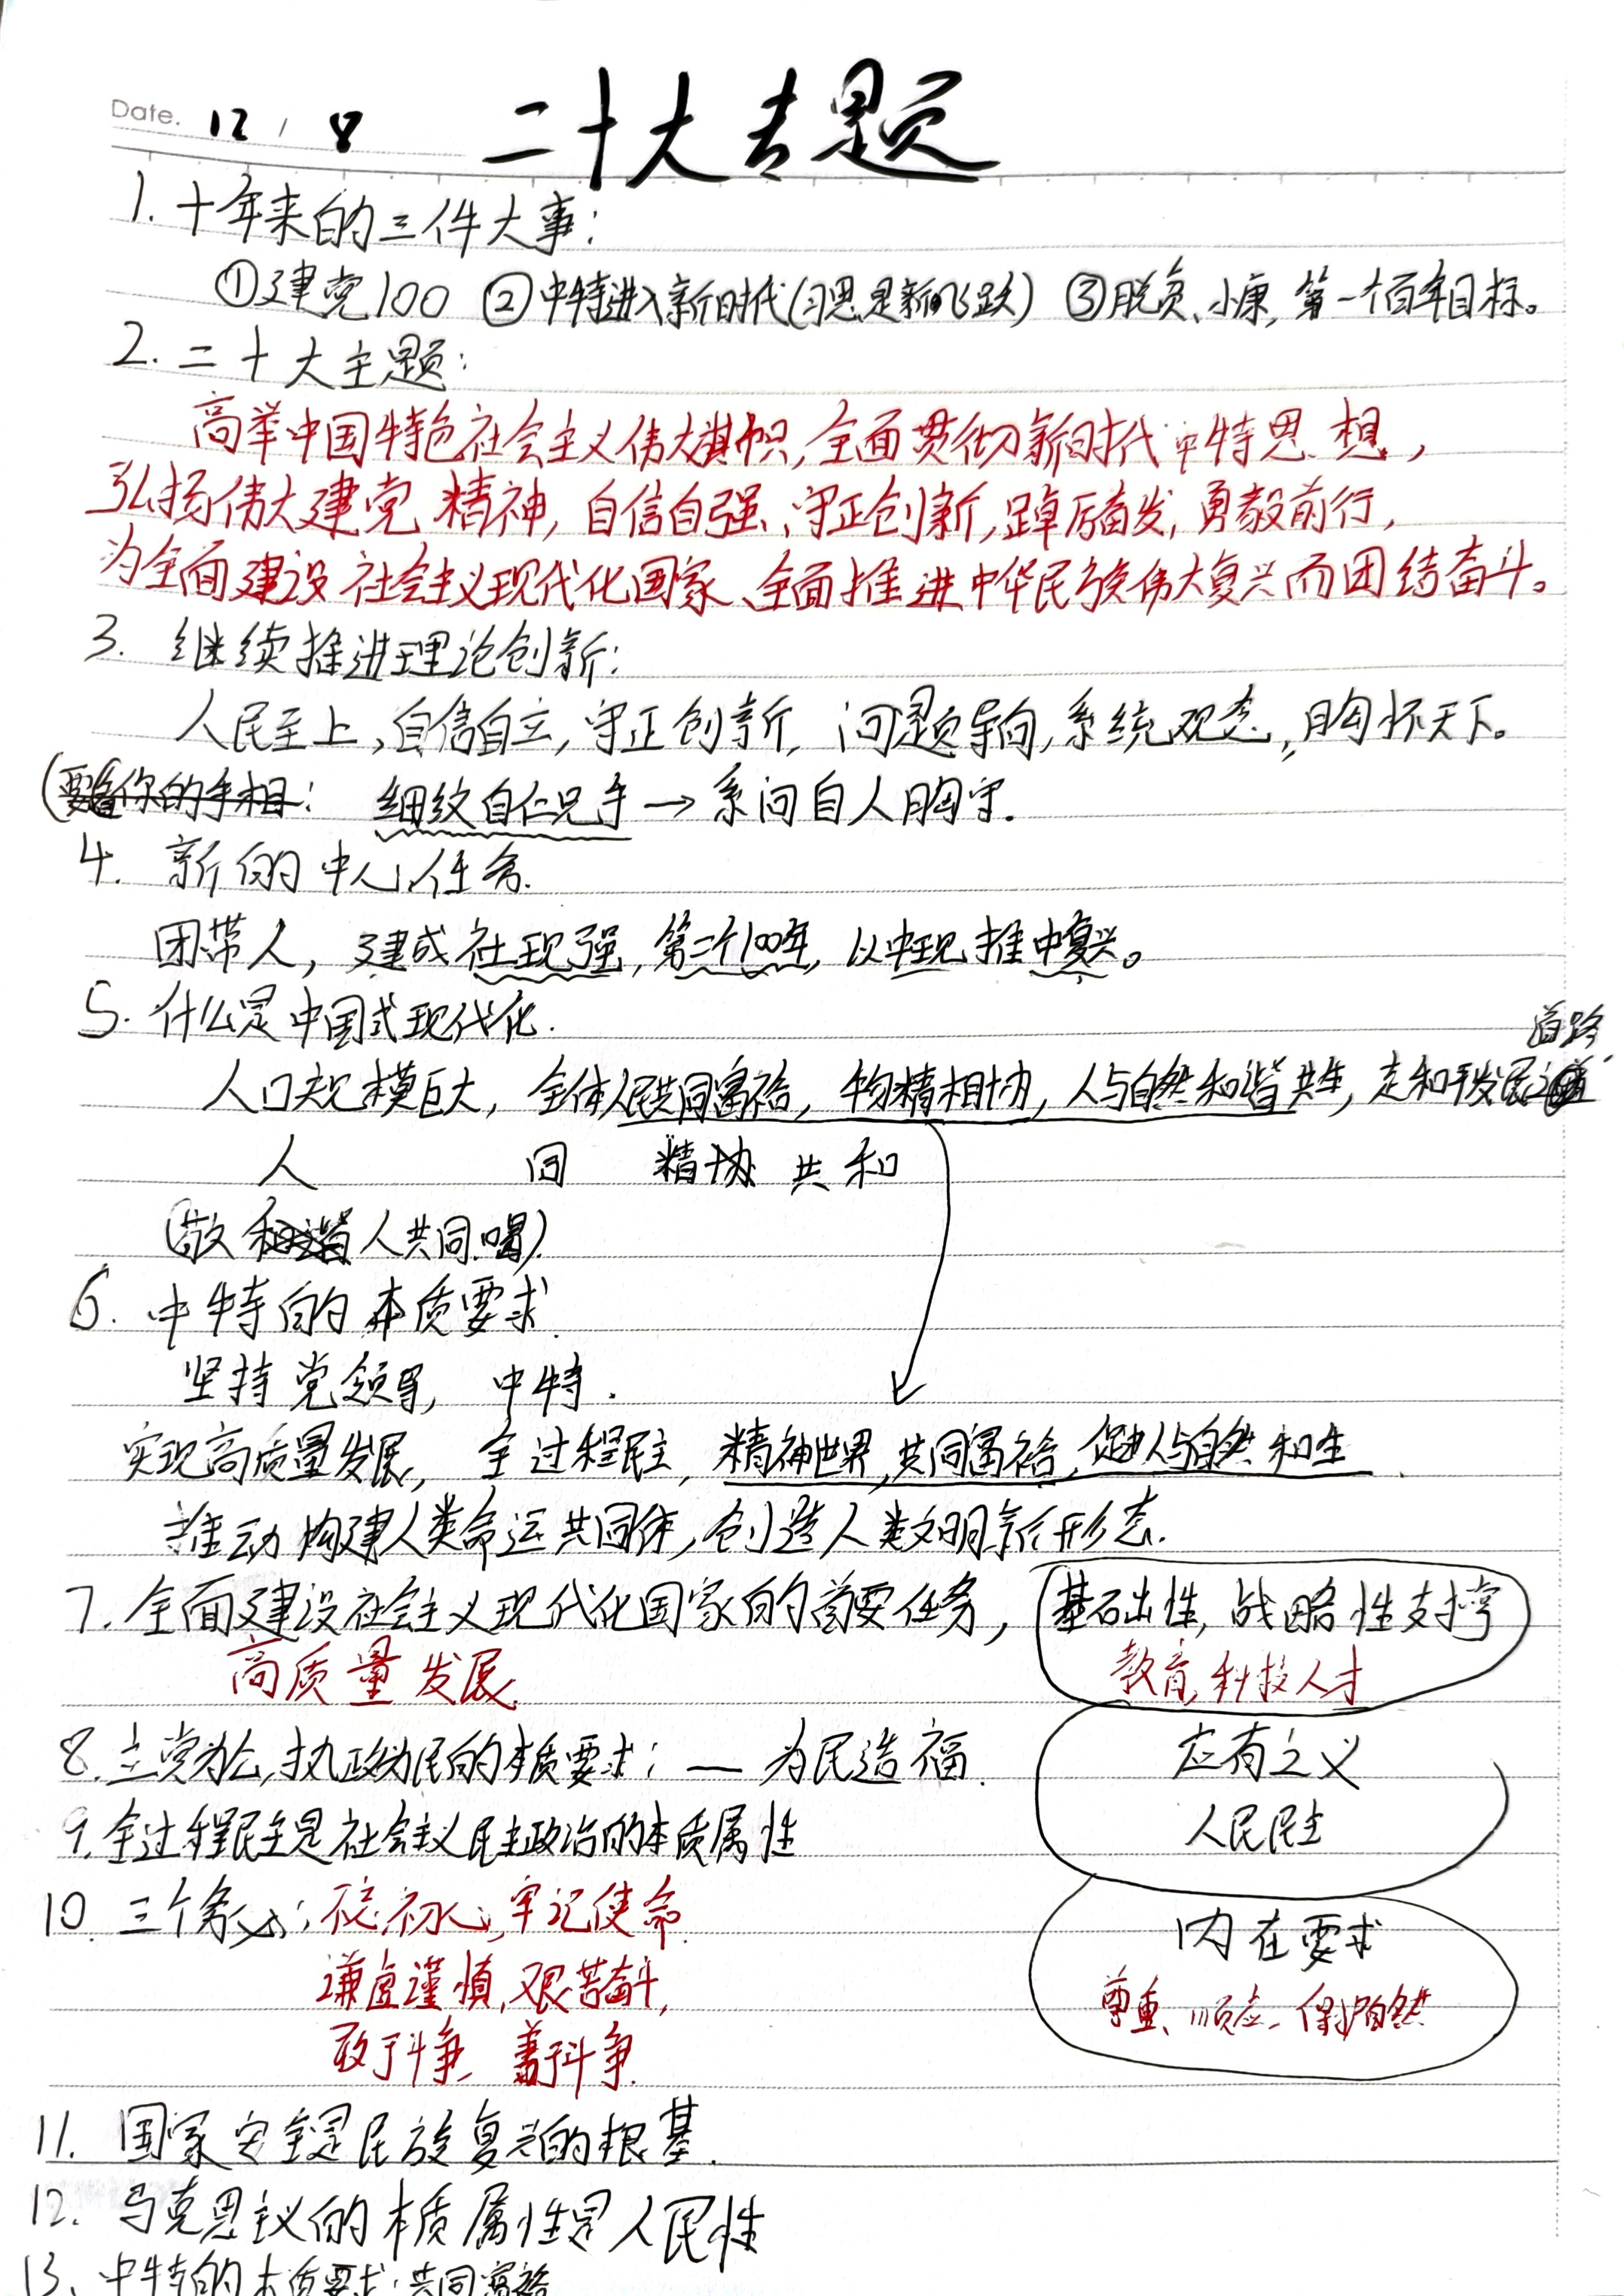 Date. 12 / 8 二十大专题
1. 十年来的三件大事:
①建党100 ②中特进入新时代(习思是新飞跃) ③脱贫、小康, 第一个百年目标。
2. 二十大主题:
高举中国特色社会主义伟大旗帜, 全面贯彻新时代中特思想,
弘扬伟大建党精神, 自信自强、守正创新, 踔厉奋发, 勇毅前行,
为全面建设社会主义现代化国家、全面推进中华民族伟大复兴而团结奋斗。
3. 继续推进理论创新:
人民至上, 自信自立, 守正创新, 问题导向, 系统观念, 胸怀天下。
(要看你的手相: 细纹自仁兄手→系问自人胸守.
4. 新的中心任务.
团带人, 建成社现强, 第二个100年, 以中现推中复兴。
5. 什么是中国式现代化.
人口规模巨大, 全体人民共同富裕, 物精相协, 人与自然和谐共生, 走和平发展道路
人 同 精协 共 和
(敬 人共同唱)
6. 中特的本质要求.
坚持党领导, 中特.
实现高质量发展, 全过程民主, 精神世界, 共同富裕, 促进人与自然和生
推动构建人类命运共同体, 创造人类文明新形态.
7. 全面建设社会主义现代化国家的首要任务, 基础性, 战略性支撑
高质量发展. 教育, 科技人才
8. 立党为公, 执政为民的本质要求: — 为民造福. 应有之义
9. 全过程民主是社会主义民主政治的本质属性 人民民主
10. 三个务必: 初心, 牢记使命. 内在要求
谦虚谨慎, 艰苦奋斗, 尊重、顺应、保护自然
敢于斗争, 善于斗争.
11. 国家安全是民族复兴的根基.
12. 马克思主义的本质属性是人民性
13. 中特的本质要求: 共同富裕